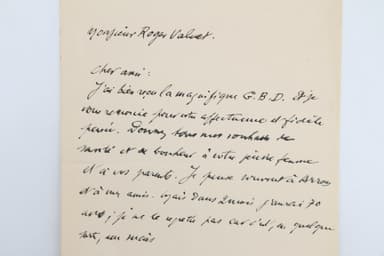 Monsieur Roger Valuet.
Cher ami:
J'ai bien reçu la magnifique G.B.D. Et je
vous remercie pour votre affectueuse et fidèle
pensée. Donnez tous mes souhaits de
santé et de bonheur à votre jeune femme
et à vos parents. Je pense souvent à
et à mes amis. mais dans 2 mois j'aurai 70
ans, je ne le regrette pas car c'est, en quelque
sorte, un succès